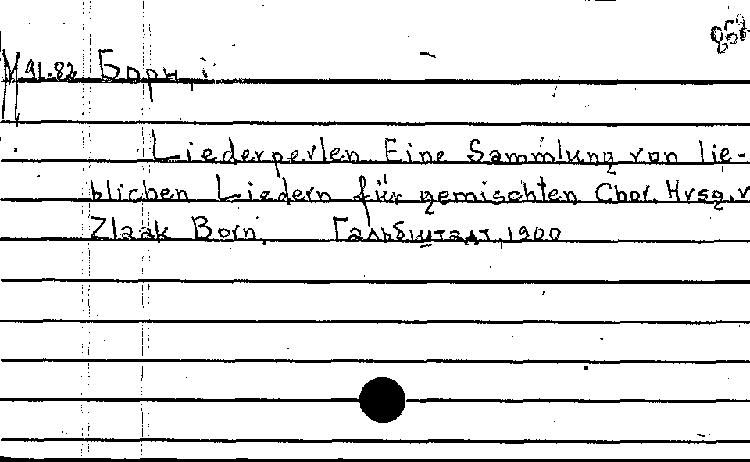 858
У 91.82 Борн, i
Liederperlen Eine Sammlung von lie-
blichen Liedern für gemischten Chor. Hrsg. v
Zlaak Born. Гальбштадт, 1900